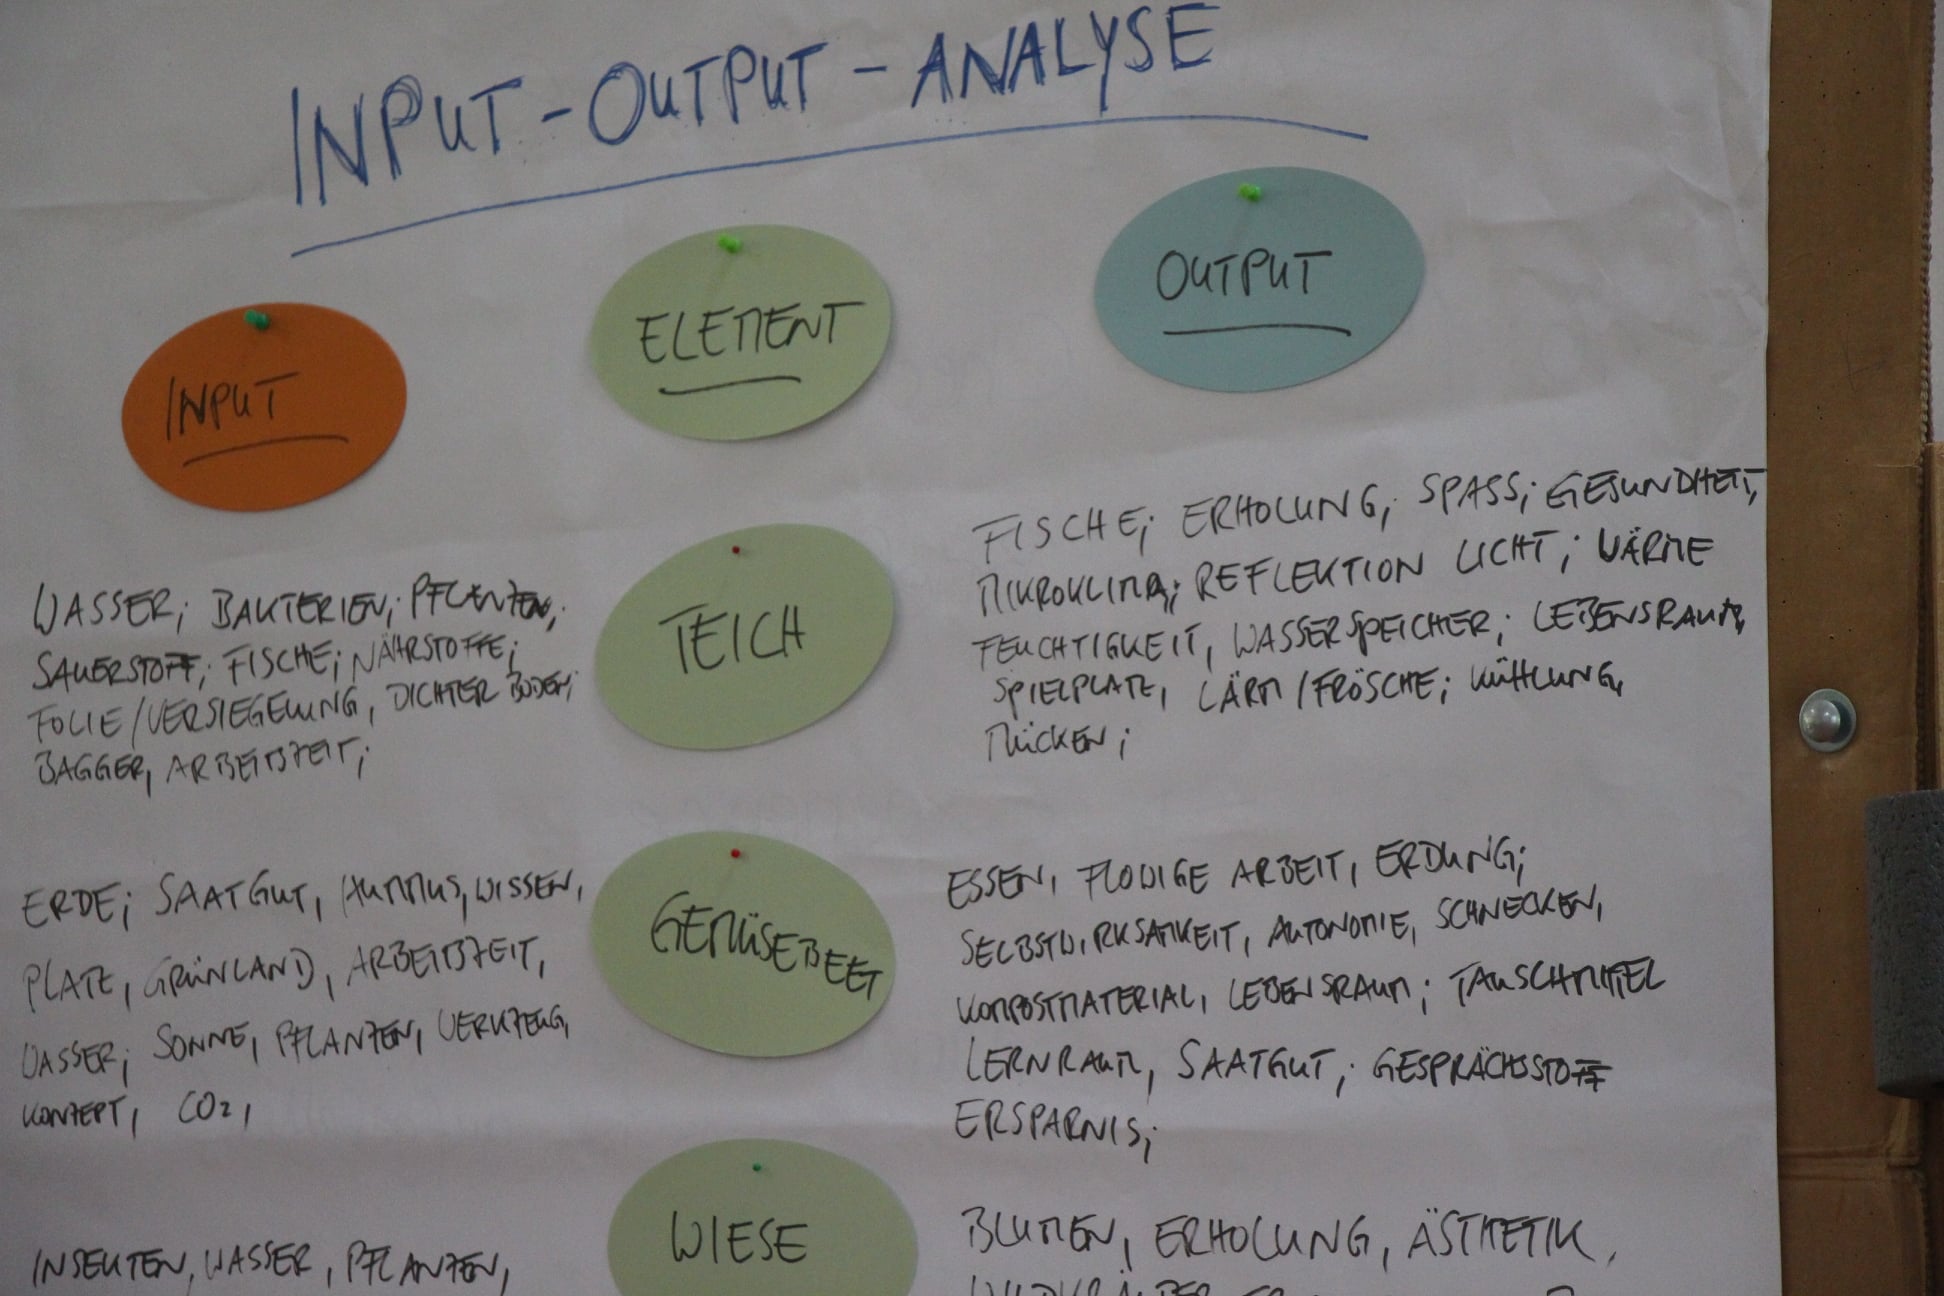 INPUT-OUTPUT-ANALYSE
INPUT
ELEMENT
OUTPUT
WASSER; BAKTERIEN; PFLANZEN;
SAUERSTOFF; FISCHE; NÄHRSTOFFE;
FOLIE/VERSIEGELUNG, DICHTER BODEN;
BAGGER, ARBEITSZEIT;
TEICH
FISCHE; ERHOLUNG; SPASS; GESUNDHEIT,
MIKROKLIMA; REFLEKTION LICHT; WÄRME
FEUCHTIGKEIT, WASSERSPEICHER; LEBENSRAUM,
SPIELPLATZ, LÄRM/FRÖSCHE; KÜHLUNG,
MÜCKEN;
ERDE; SAATGUT, HUMMUS, WISSEN,
PLATZ, GRÜNLAND, ARBEITSZEIT,
WASSER; SONNE, PFLANZEN, WERKZEUG,
KONZEPT, CO2,
GEMÜSEBEET
ESSEN, ARBEIT, ERDUNG;
SELBSTWIRKSAMKEIT, AUTONOMIE, SCHNECKEN,
KOMPOSTMATERIAL, LEBENSRAUM; TAUSCHMITTEL
LERNRAUM, SAATGUT; GESPRÄCHSSTOFF
ERSPARNIS;
INSEKTEN, WASSER, PFLANZEN,
WIESE
BLUMEN, ERHOLUNG, ÄSTHETIK,